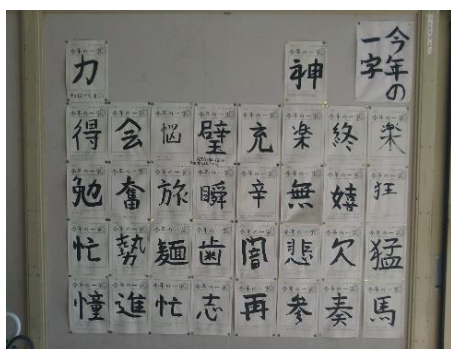 今年の一字
力 神
得 会 悩 璧 充 楽 終 楽
勉 奮 旅 瞬 辛 無 嬉 狂
忙 勢 麺 歯 闇 悲 欠 猛
憧 進 忙 志 再 参 奏 馬